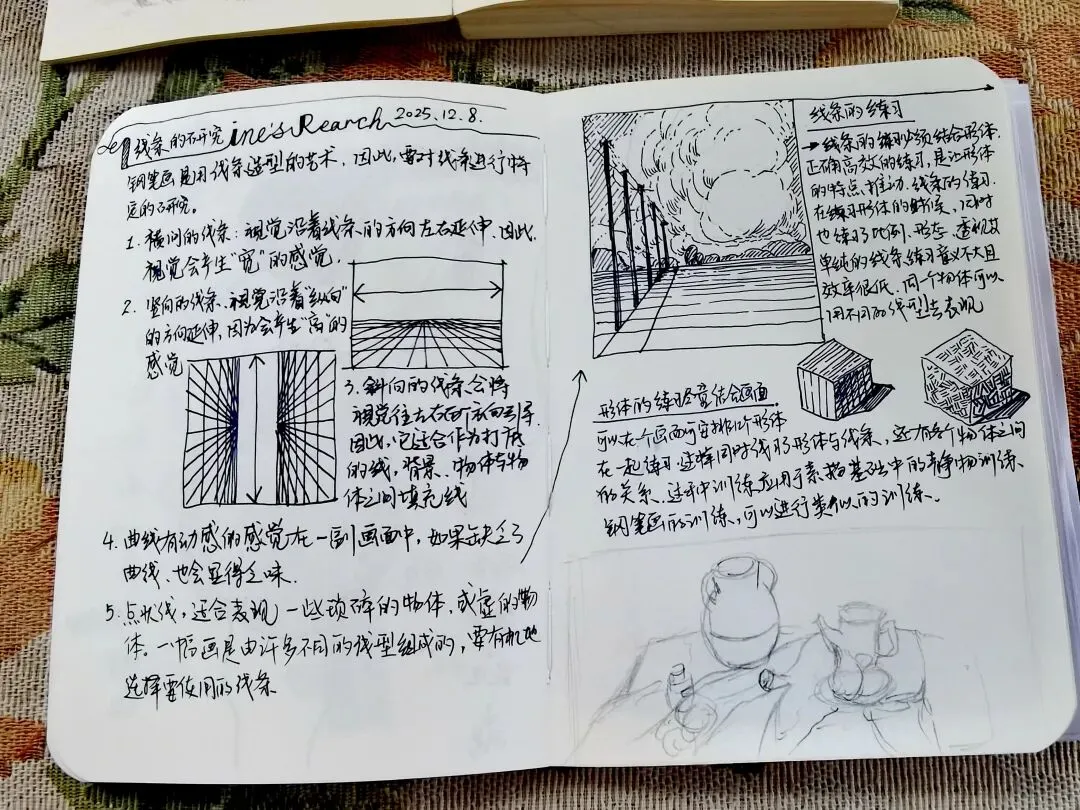 线条的研究 Line's Rearch 2025.12.8.
钢笔画是用线条造型的艺术，因此，要对线条进行特
定的研究。
1. 横向的线条：视觉沿着线条的方向左右延伸，因此，
视觉会产生"宽"的感觉，
2. 竖向的线条、视觉沿着"纵向"
的方向延伸，因为会产生"高"的
感觉
3. 斜向的线条会将
视觉往左右两方向引导，
因此，它适合作为打底
的线，背景、物体与物
体之间填充线
4. 曲线有动感的感觉在一副画面中，如果缺乏了
曲线、也会显得乏味.
5. 点状线，适合表现一些琐碎的物体，或虚的物
体。一幅画是由许多不同的线型组成的，要有机地
选择要使用的线条
线条的练习
线条的练习必须结合形体.
正确高效的练习，是让形体
的特点，推动，线条的练习.
在练习形体的时候，同时
也练习了比例、形态、透视等
单纯的线条练习意义不大且
效率很低、同一个物体可以
用不同的线型去表现
形体的练习尽量结合画面
可以在个画面可安排几个形体
在一起练习、选择同时线形形体与线条、还有各个物体之间
的关系、这种训练应用于素描基础中的静物训练、
钢笔画的训练，可以进行类似的训练、